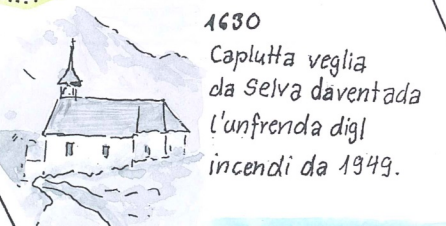 1630
Caplutta veglia
da Selva daventada
l'unfrenda digl
incendi da 1949.